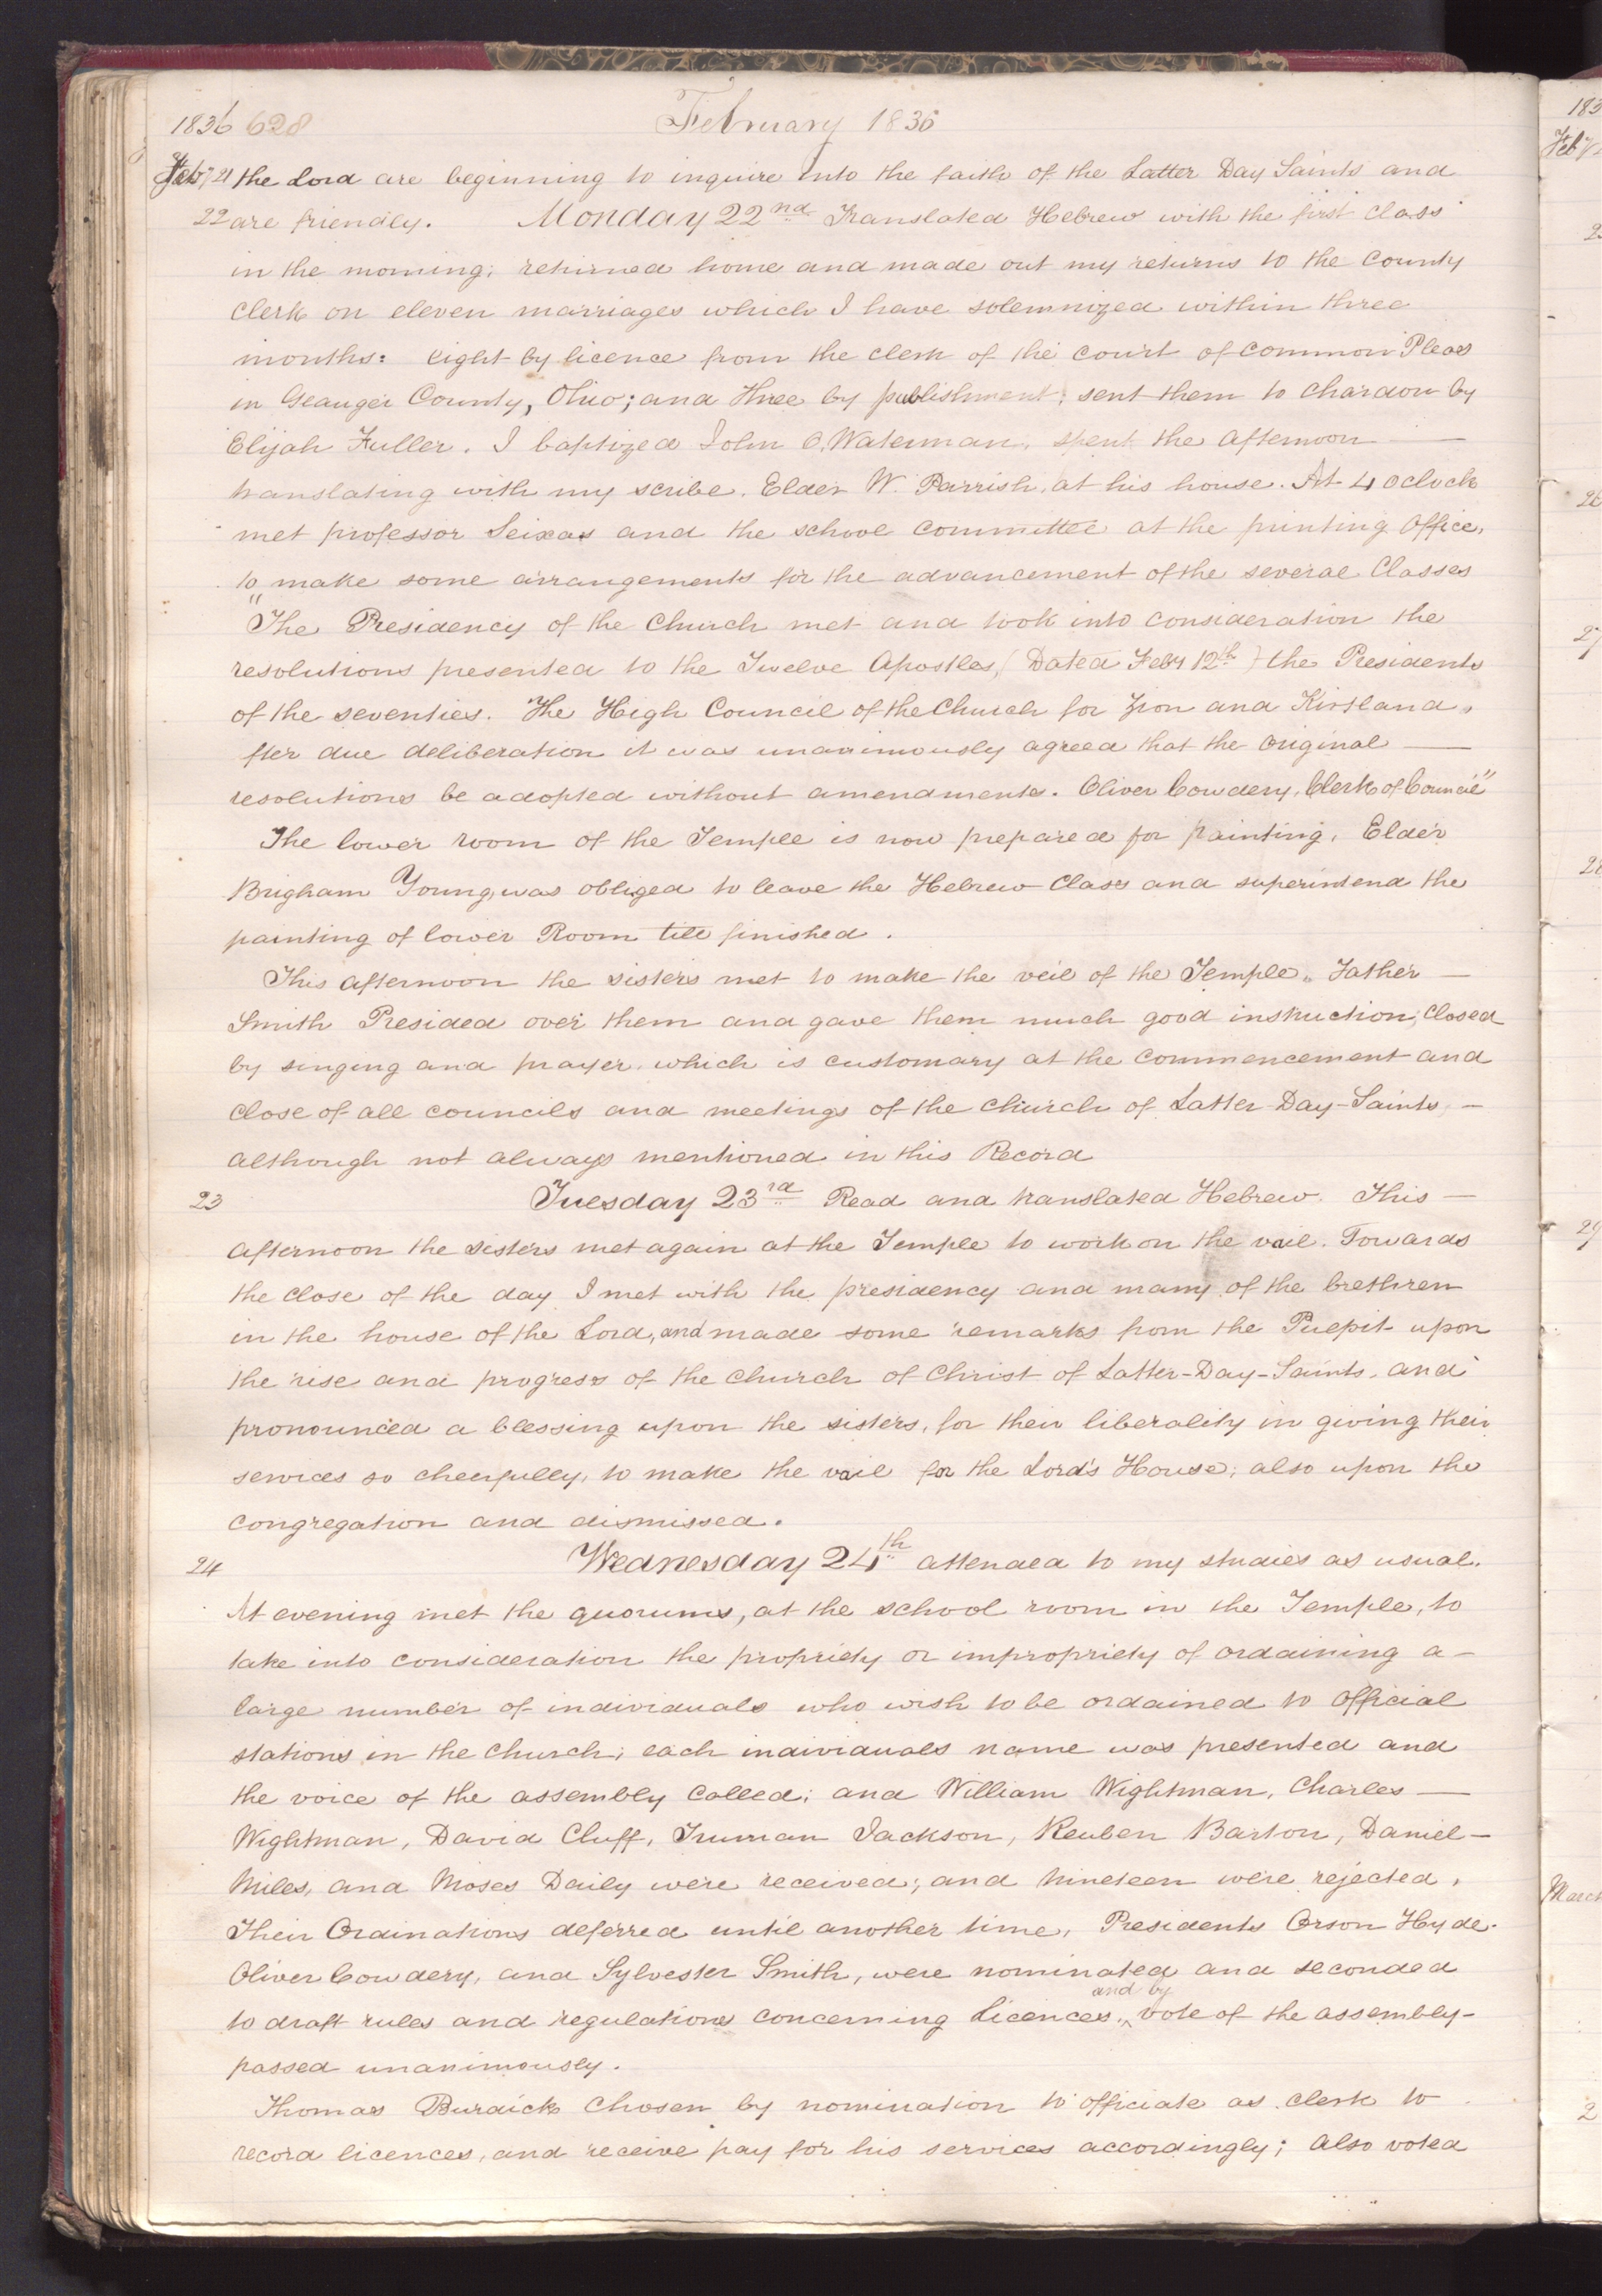 1836 628 February 1836
Feby 21 the Lord are beginning to inquire into the faith of the Latter Day Saints and
22 are friendly. Monday 22nd Translated Hebrew with the first class
in the morning; returned home and made out my returns to the County
Clerk on eleven marriages which I have solemnized within three
months: Eight by licence from the clerk of the court of common Pleas
in Geauger County, Ohio; and Three by publishment; sent them to Chardon by
Elijah Fuller. I baptized John O, Waterman, spent the afternoon —
translating with my scribe, Elder W. Parrish, at his house. At 4 oclock
met professor Seixas and the school committee at the printing Office,
to make some arrangements for the advancement of the several Classes
"The Presidency of the Church met and took into consideration the
resolutions presented to the Twelve Apostles, (Dated Feby 12th) the Presidents
of the seventies. The High Council of the Church for Zion and Kirtland,
fter due deliberation it was unanimously agreed that the original —
resolutions be adopted without amendments. Oliver Cowdery, Clerk of Council"
The lower room of the Temple is now prepared for painting. Elder
Brigham Young, was obliged to leave the Hebrew Class and superintend the
painting of lower Room till finished.
This afternoon the sisters met to make the veil of the Temple, Father —
Smith Presided over them and gave them much good instruction; Closed
by singing and prayer, which is customary at the commencement and
close of all councils and meetings of the church of Latter-Day-Saints, —
although not always mentioned in this Record
23 Tuesday 23rd Read and translated Hebrew. This —
afternoon the sisters met again at the Temple to work on the vail. Towards
the close of the day I met with the presidency and many of the brethren
in the house of the Lord, and made some remarks from the Pulpit upon
the rise and progress of the Church of Christ of Latter-Day-Saints, and
pronounced a blessing upon the sisters, for their liberality in giving their
services so cheerfully, to make the vail for the Lord's House; also upon the
congregation and dismissed.
24 Wednesday 24th attended to my studies as usual.
At evening met the quorums, at the school room in the Temple, to
take into consideration the propriety or impropriety of ordaining a —
large number of individuals who wish to be ordained to official
stations in the Church; each individuals name was presented and
the voice of the assembly called; and William Wightman, Charles —
Wightman, David Cluff, Truman Jackson, Reuben Barton, Daniel —
Miles, and Moses Daily were received; and Nineteen were rejected,
Their Ordinations deferred until another time, Presidents Orson Hyde.
Oliver Cowdery, and Sylvester Smith, were nominated and seconded
and by
to draft rules and regulations concerning Licences, ^ vote of the assembly —
passed unanimously.
Thomas Burdick Chosen by nomination to officiate as clerk to
record licences, and receive pay for his services accordingly; also voted
183
Feby
2
26
27
28
29
March
2